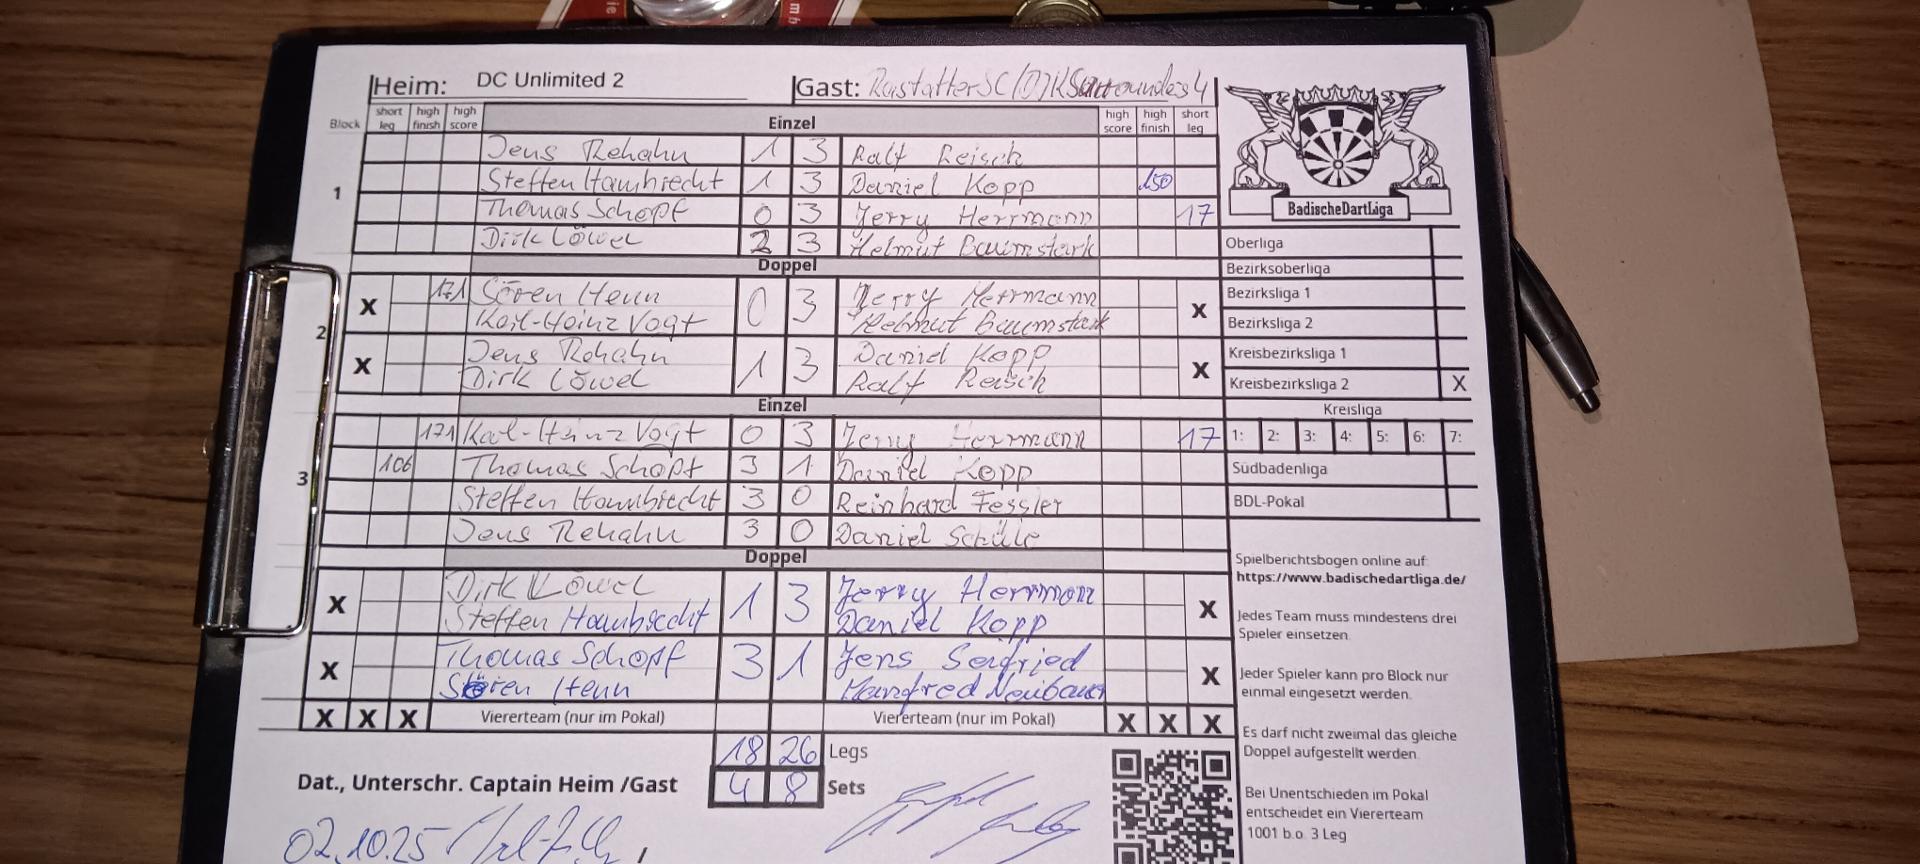 Heim: DC Unlimited 2 Gast: Rastatter SC/DJK 4
Block short leg high finish high score Einzel high score high finish short leg
1
Jens Rehahn 1 3 Ralf Reisch
Steffen Hambrecht 1 3 Daniel Kopp 150
Thomas Schopf 0 3 Jerry Herrmann 17
Dirk Löwel 2 3 Helmut Baumstark
Doppel
2
X 171 Sören Henn 0 3 Jerry Herrmann X
Karl-Heinz Vogt Helmut Baumstark
X Jens Rehahn 1 3 Daniel Kopp X
Dirk Löwel Ralf Reisch
Einzel
3
171 Karl-Heinz Vogt 0 3 Jerry Herrmann 17
106 Thomas Schopf 3 1 Daniel Kopp
Steffen Hambrecht 3 0 Reinhard Fessler
Jens Rehahn 3 0 Daniel Schüle
Doppel
X Dirk Löwel 1 3 Jerry Herrmann X
Steffen Hambrecht Daniel Kopp
X Thomas Schopf 3 1 Jens Seifried X
Sören Henn Manfred Neubauer
X X X Viererteam (nur im Pokal) Viererteam (nur im Pokal) X X X
18 26 Legs
4 8 Sets
Dat., Unterschr. Captain Heim /Gast
02.10.25
BadischeDartLiga
Oberliga
Bezirksoberliga
Bezirksliga 1
Bezirksliga 2
Kreisbezirksliga 1
Kreisbezirksliga 2 X
Kreisliga
1: 2: 3: 4: 5: 6: 7:
Südbadenliga
BDL-Pokal
Spielberichtsbogen online auf:
https://www.badischedartliga.de/
Jedes Team muss mindestens drei
Spieler einsetzen.
Jeder Spieler kann pro Block nur
einmal eingesetzt werden.
Es darf nicht zweimal das gleiche
Doppel aufgestellt werden.
Bei Unentschieden im Pokal
entscheidet ein Viererteam
1001 b.o. 3 Leg